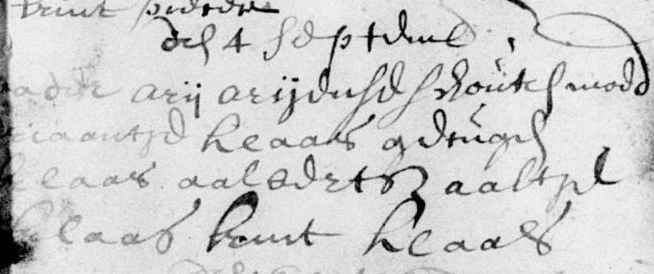 trint pieters
den 4 september
vader arij arijense schouten moder
ariaantje klaas getuigen
klaas aalberts aaltje
klaas kint klaas